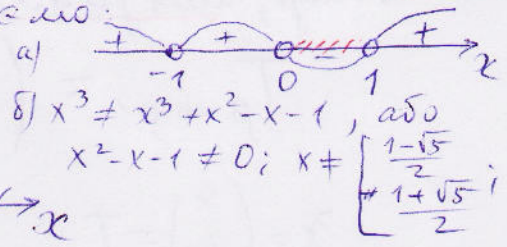 ємо:
а) + + - + x
-1 0 1
б) x³ ≠ x³ + x² - x - 1, або
x² - x - 1 ≠ 0; x ≠ [ (1-√5)/2 ; (1+√5)/2 ;
x